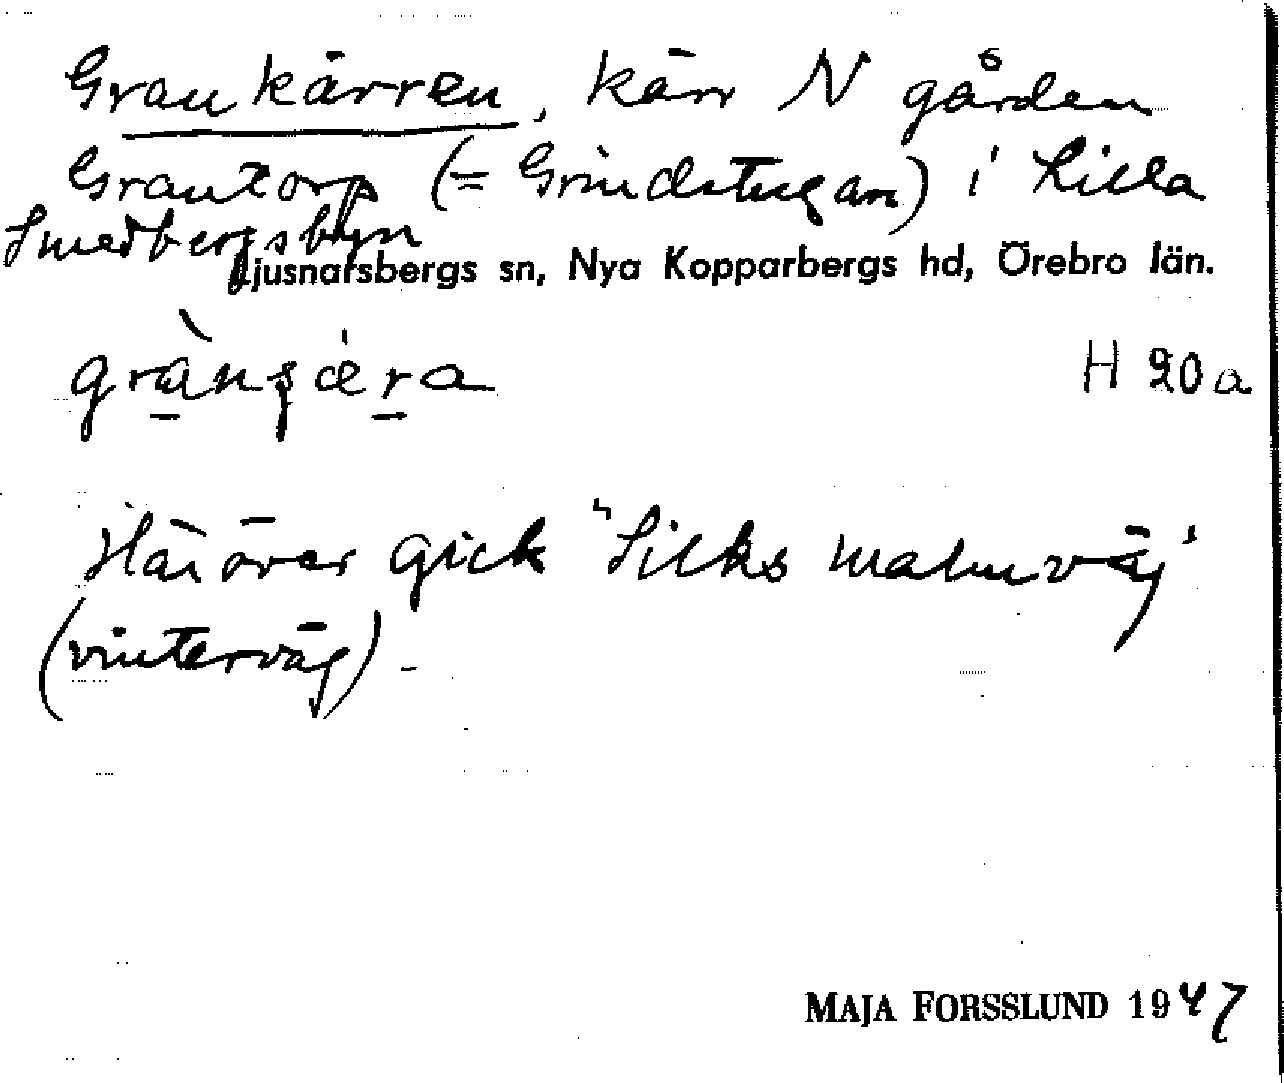 Grankärren, kärr N gården
Grantorp (= Grindstugan) i Lilla
Smedbergsbyn
Ljusnarsbergs sn, Nya Kopparbergs hd, Örebro län.
H 20a
Häröver gick "Silks malmväg"
(vinterväg) -
MAJA FORSSLUND 1947